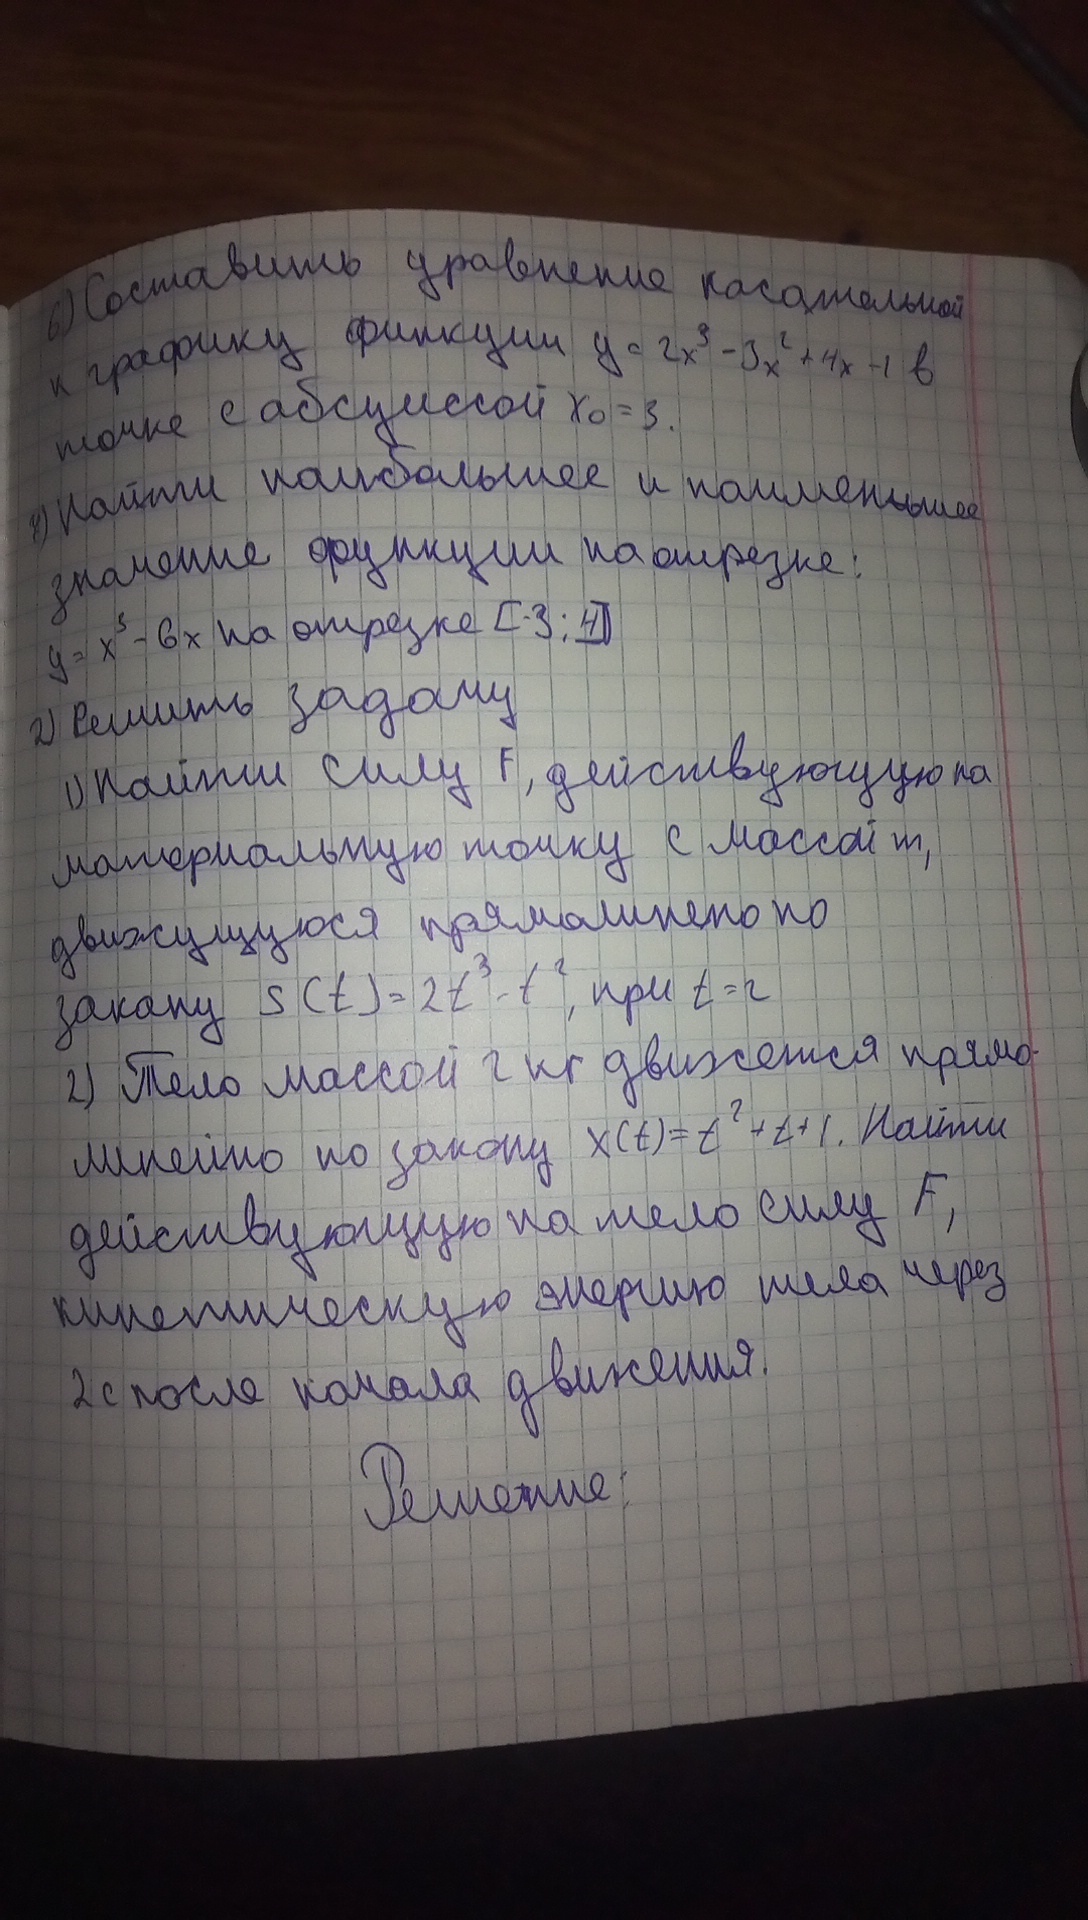 6) Составить уравнение касательной
к графику функции y = 2x³ - 3x² + 4x - 1 в
точке с абсциссой x₀ = 3.
7) Найти наибольшее и наименьшее
значение функции на отрезке:
y = x³ - 6x на отрезке [-3; 4]
2) Решить задачу
1) Найти силу F, действующую на
материальную точку с массой m,
движущуюся прямолинено по
закану S(t) = 2t³ - t², при t = 2
2) Тело массой 2 кг движется прямо-
линейно по закону x(t) = t² + t + 1. Найти
действующую на тело силу F,
кинетическую энергию тела через
2 с после начала движения.
Решение: